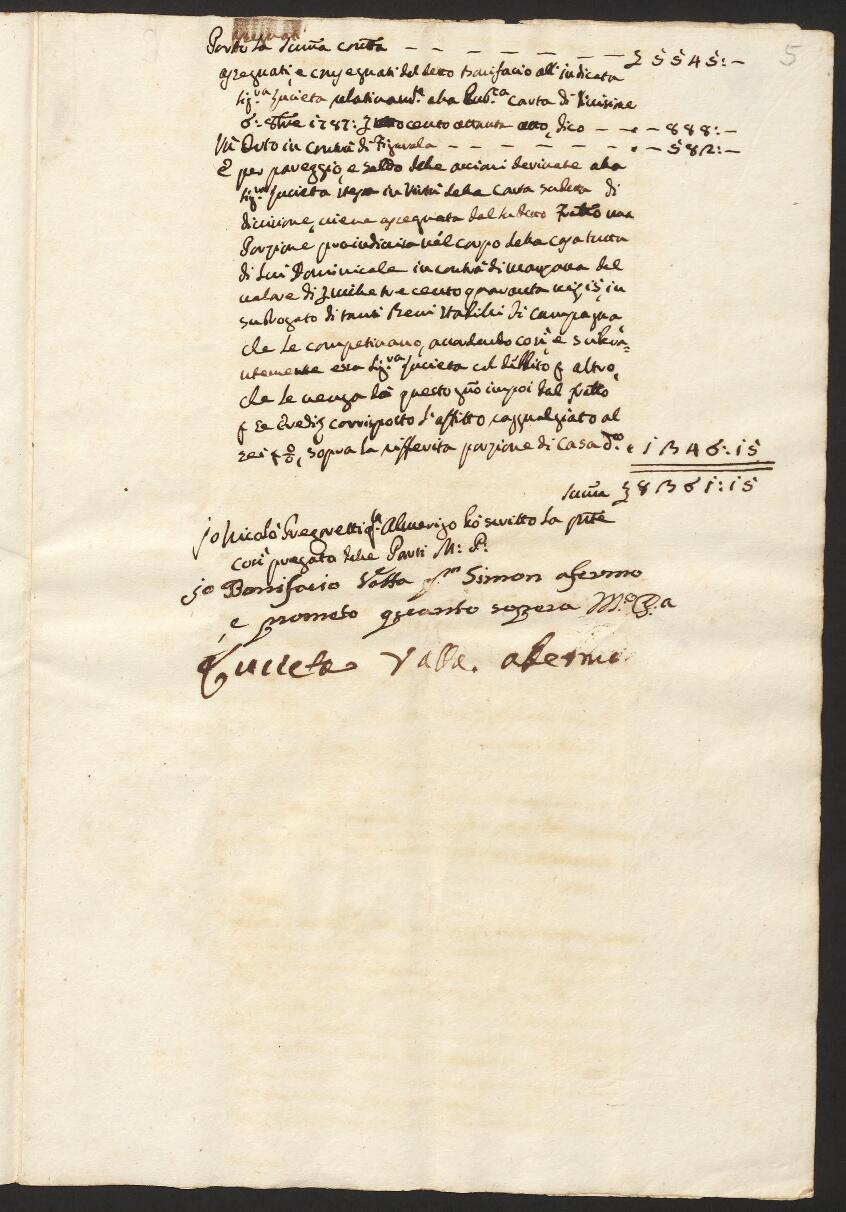 5
Porto la Suma contta — — — — — — — £ 5545:—
assegnati, e consegnati dal detto Bonifacio all'indicata
Sig.ra Lucieta relativam.te alla Pub.ca Carta di Divisione
6: 8bre 1787: £ otto cento ottanta otto, dico — — • — 888:—
Un Orto in contrà di Figarola — — — — — • — 582:—
E per pareggio, e saldo delle azzioni devinute alla
Sig.ra Lucieta stessa in virtù della Carta sudetta di
divisione, viene assegnata dal sudetto Fratello una
Porzione proindivisa nel corpo della casa tutta
di lui Dominicale in contrà di
valore di £ mille tre cento quaranta sei, 15, in
surrogato di tanti Beni Stabili di Campagna
che le competivano, accordando così, e
utemente essa Sig.ra Lucieta col diffito p altro,
che le venga da questo gno impoi dal Fratello
p Ea Eredi corrisposto l'affitto ragguagliato al
sei p %, sopra la rifferita porzione di Casa d.co • 1346:15
Suma £ 8361:15
Io Nicolò Gregoretti q. Almerigo hò scritto la pnte
così pregato delle Parti M: P:
Io Bonifacio Vatta q.m Simon afermo
e prometo quanto sopera M.o P.a
Lucieta Vatta afermo